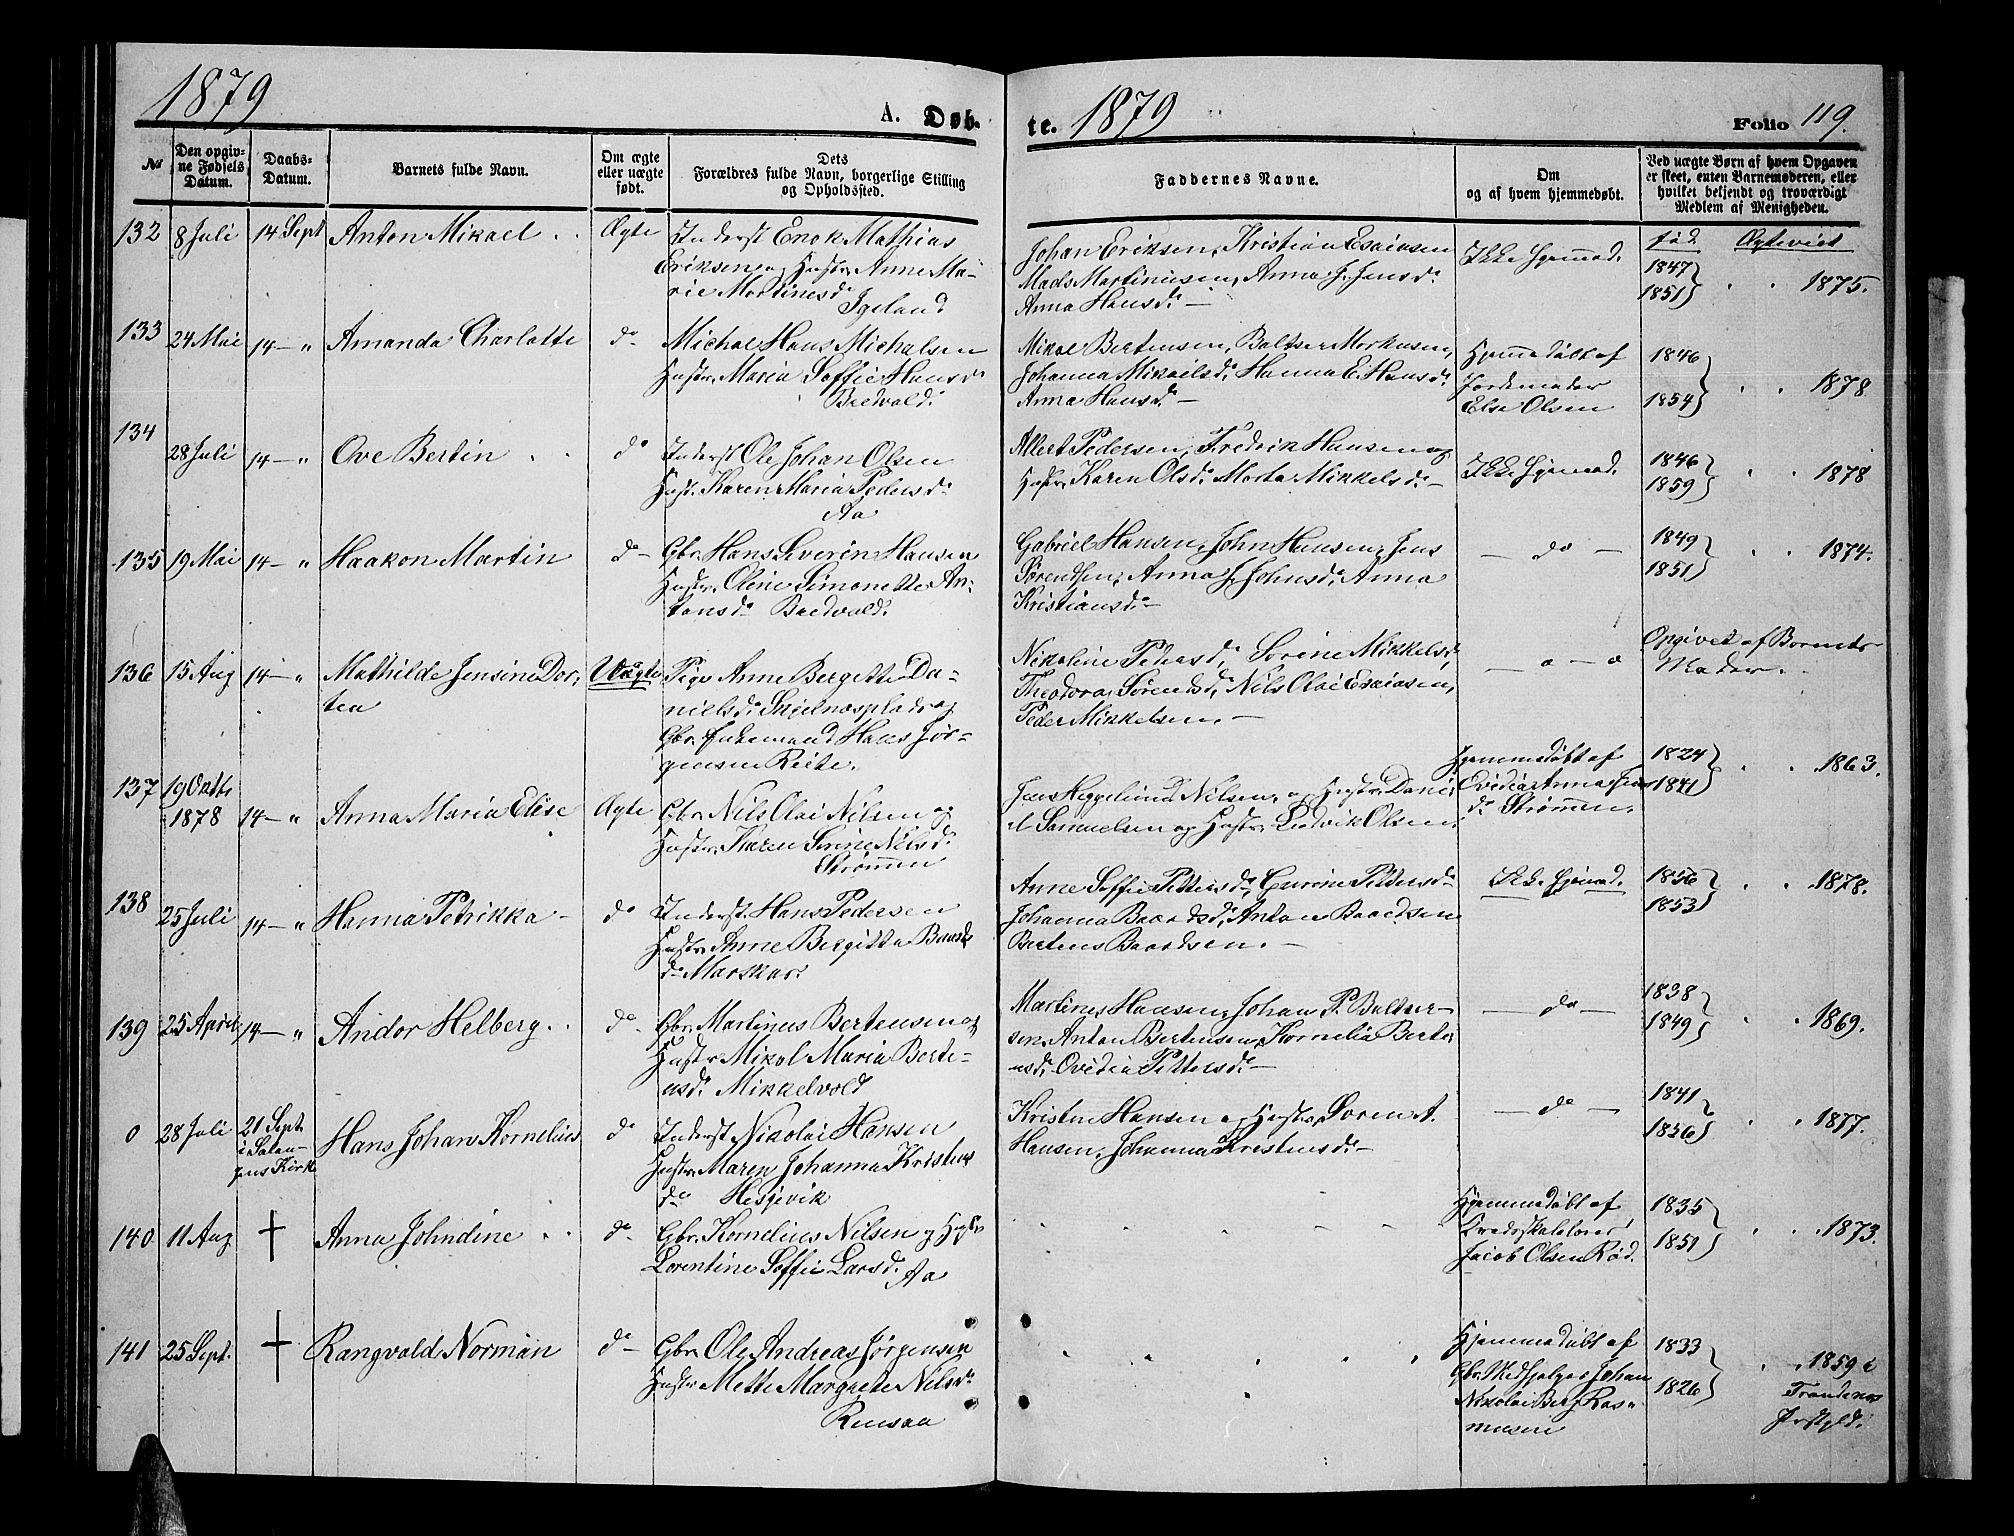 1879
A. Døb-
te. 1879
Folio 119.
№
Den opgiv-
ne Fødsels
Datum.
Daabs-
Datum.
Barnets fulde Navn.
Om ægte
eller uægte
født.
Dets
Forældres fulde Navn, borgerlige Stilling
og Opholdssted.
Faddernes Navne.
Om
og af hvem hjemmedøbt.
Ved uægte Børn af hvem Opgaven
er skeet, enten Barnemoderen, eller
hvilket bekjendt og troværdigt
Medlem af Menigheden.
132 8 Juli 14 Sept Anton Mikael Ægte
Inderst Enok Mathias
Eriksen og Hustr. Anne Ma-
rie Martinesd.
Igeland
Johan Eriksen, Kristian Esaiasen
Mads Martinusen, Anna J. Jensd.
Anna Hansd. —
Ikke Hjemmed.
fød Ægteviet
1847
1851 " " 1875.
133 24 Mai 14 — " Amanda Charlotte do
Michal Hans Michalsen
Hustr. Maria Soffie Hansd.
Bredvold.
Mikal Bertensen, Baltser Markusen,
Johanna Mikaelsd. Hanna E. Hansd.
Anna Hansd. —
Hjemmedøbt af
Jordemoder
Else Olsen
1846
1854 " " 1878
134 28 Juli 14 — " Ove Bertin do
Inderst Ole Johan Olsen
Hust. Karen Maria Pedersd.
Aa
Albert Pedersen, Fredrik Hansen og
Hustr. Karen Olsd. Marta Mikkelsd. —
Ikke Hjemmed.
1846
1859 " " 1878
135 19 Mai 14 — " Haakon Martin do —
Gbr. Hans Severin Hansen
Hustr. Oline Simonette An-
tonsd. Bredvold.
Gabriel Hansen, John Hansen, Jens
Sørendsen, Anna J. Johnsd. Anna
Kristiansd. —
— do —
1849
1851 " " 1874.
136 15 Aug 14 — " Mathilde Jensine Dor-
tea
Uægte
Pige Anne Bergitte Da-
nielsd. Skjelnæsplads og
Gbr. Enkemand Hans Jør-
gensen Reite.
Nikoline Pedersd. Sørine Mikkelsd.
Theodora Sørensd. Nils Olai Esaiasen,
Peder Mikkelsen. —
— o — o
Opgivet af Barnets
Moder.
137 19 Oktb.
1878 14 — " Anna Maria Elise Ægte
Gbr. Nils Olai Nilsen og
Hustr. Karen Sørine Nilsd.
Strømmen
Jens Heggelund Nilsen, og Hustr. Dani-
el Samuelsen og Hustr. Ludvik Olsen.
Hjemmedøbt af
Ovidia Anna
d. Strømmen.
1824
1841 " " 1863.
138 25 Juli 14 — " Hanna Petrikka — do
Inderst. Hans Pedersen
Hustr. Anne Birgitta Baards
d. Marskar.
Anne Soffie Pettersd. Pettersd.
Johanna Baardsd. Anton Baardsen
Bertens Baardsen. —
Ikke Hjemmed.
1856
1853 " " 1878.
139 25 April 14 — " Andor Helberg. do
Gbr. Martinus Bertensen og
Hustr. Mikol Maria Berte-
nsd. Mikkelvold
Martines Hansen, Johan P. Baltser-
sen, Anton Bertensen, Kornelia Berte-
nsd. Ovedia Pettersd. —
— do —
1838
1849 " " 1869.
0 28 Juli 21 Sept.
i Salan-
gens Kirk
Hans Johan Kornelius do
Inderst Nikolai Hansen
Hustr. Maren Johanna Kristens
do Hesjevik
Kristen Hansen og Hustr. Soren A.
Hansen, Johanna Kristensd. —
— do —
1841
1856 " " 1877.
140 11 Aug † Anna Johndine do
Gbr. Kornelius Nilsen og Hustr.
Lorentine Soffie Larsd. Aa
Hjemmedøbt af
Kredsskolelærer
Jacob Olsen Rød.
1835
1851 " " 1873.
141 25 Sept. † Rangvald Norman do —
Gbr. Ole Andreas Jørgensen
Hustr. Mette Margrete Nilsd.
Rensaa
Hjemmedøbt af
Gbr. Medhjelper Johan
Nikolai Berg Ras-
musen
1833
1826 " " 1859 i
Trondenes